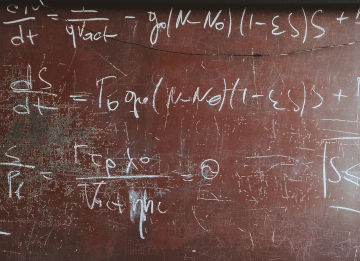 dN/dt = I/qVact - g0(N-N0)(1-εS)S +
dS/dt = Γ0 g0(N-N0)(1-εS)S +
S/Pf = Γτpλ0/Vact ηhc =
S ≤